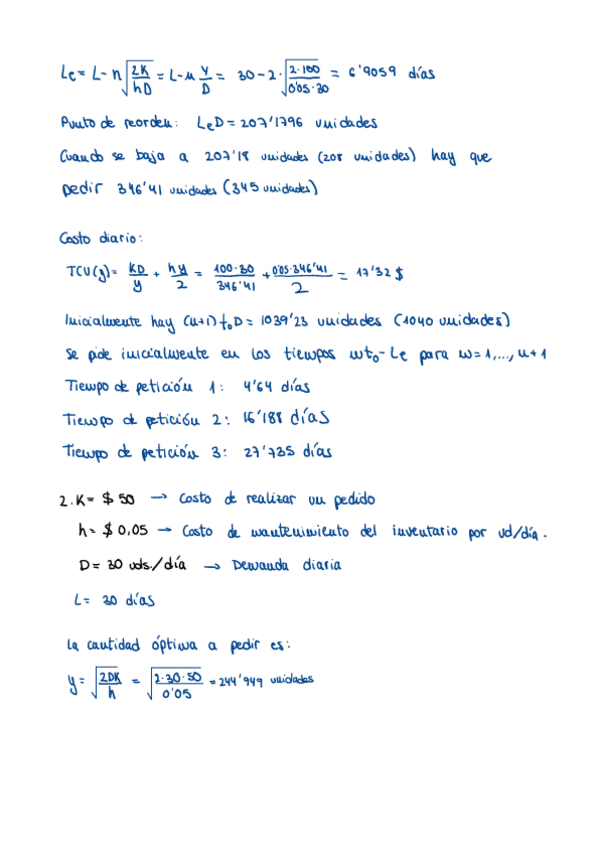 Le = L - n √(2K/hD) = L - n y/D = 30 - 2 · √(2·100/0'05·30) = 6'9059 días
Punto de reorden: LeD = 207'1796 unidades
Cuando se baja a 207'18 unidades (208 unidades) hay que
pedir 346'41 unidades (345 unidades)
Costo diario:
TCU(y) = KD/y + hy/2 = 100·30/346'41 + 0'05·346'41/2 = 17'32 $
Inicialmente hay (n+1) t₀D = 1039'23 unidades (1040 unidades)
Se pide inicialmente en los tiempos mt₀ - Le para m = 1, ..., n+1
Tiempo de petición 1: 4'64 días
Tiempo de petición 2: 16'188 días
Tiempo de petición 3: 27'735 días
2. K = $ 50 → Costo de realizar un pedido
h = $ 0,05 → Costo de mantenimiento del inventario por ud/día.
D = 30 uds./día → Demanda diaria
L = 30 días
La cantidad óptima a pedir es:
y = √(2DK/h) = √(2·30·50/0'05) = 244'949 unidades